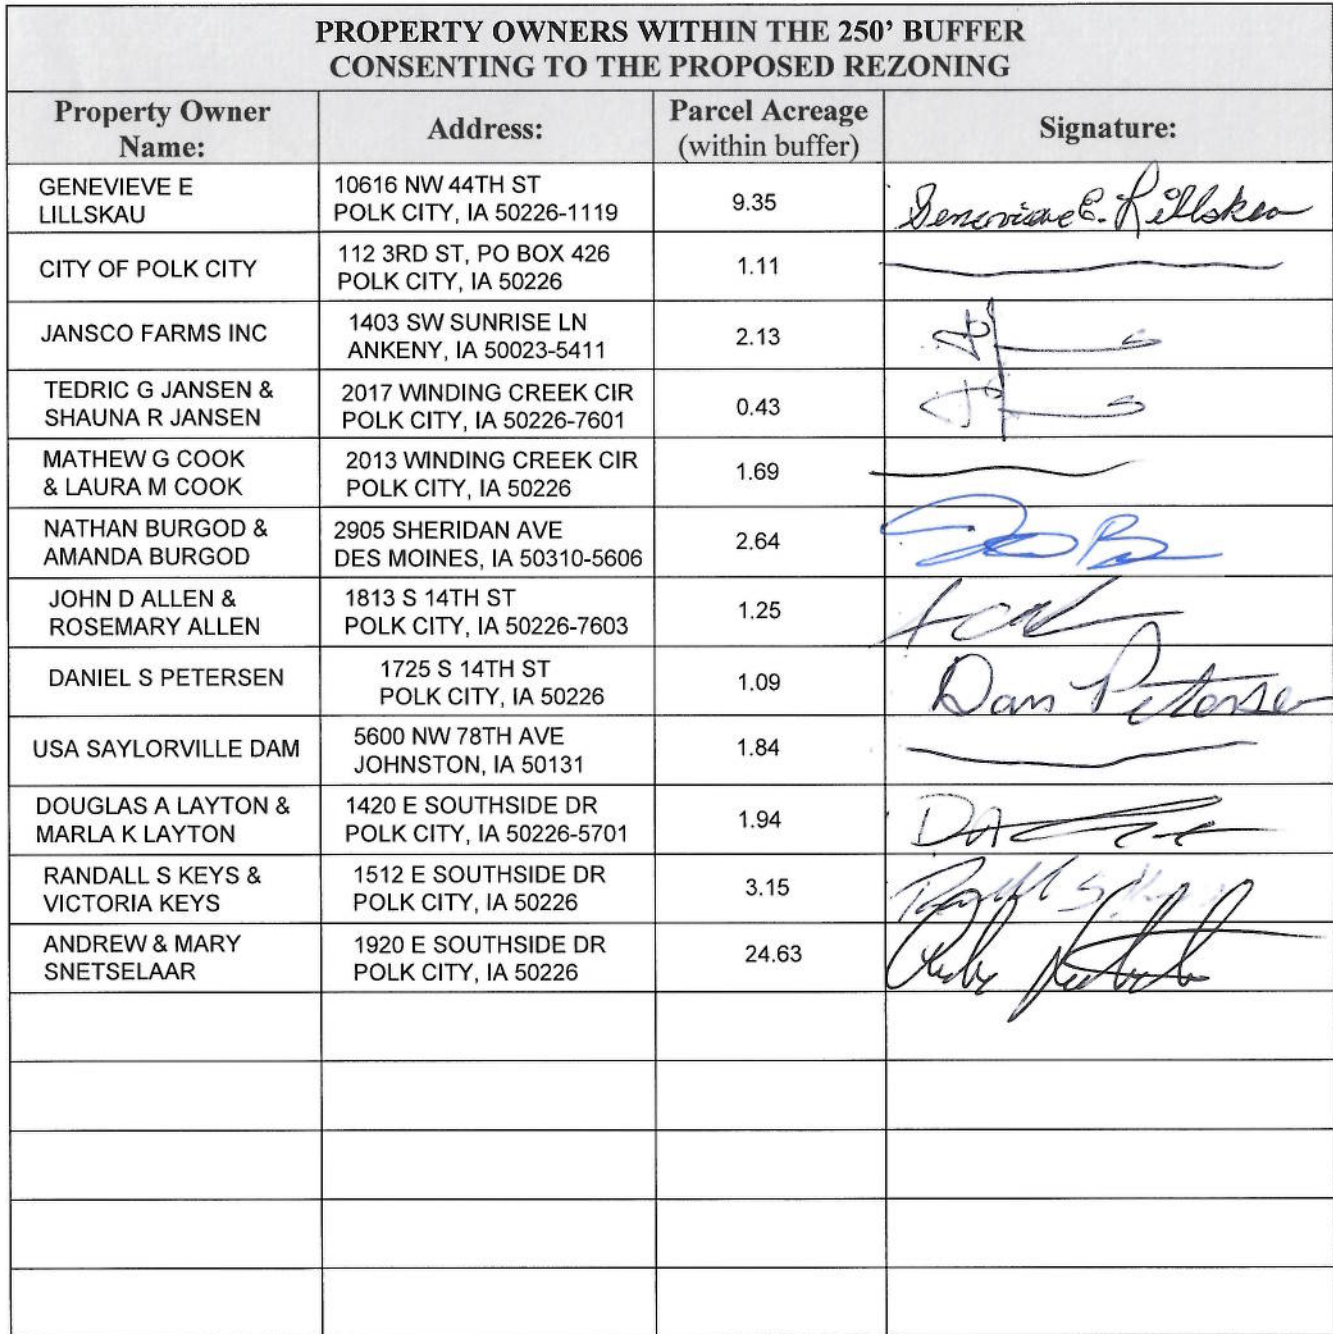 PROPERTY OWNERS WITHIN THE 250' BUFFER
CONSENTING TO THE PROPOSED REZONING
Property Owner
Name:
Address:
Parcel Acreage
(within buffer)
Signature:
GENEVIEVE E
LILLSKAU
10616 NW 44TH ST
POLK CITY, IA 50226-1119
9.35
Genevieve E. Lillskau
CITY OF POLK CITY
112 3RD ST, PO BOX 426
POLK CITY, IA 50226
1.11
JANSCO FARMS INC
1403 SW SUNRISE LN
ANKENY, IA 50023-5411
2.13
TEDRIC G JANSEN &
SHAUNA R JANSEN
2017 WINDING CREEK CIR
POLK CITY, IA 50226-7601
0.43
MATHEW G COOK
& LAURA M COOK
2013 WINDING CREEK CIR
POLK CITY, IA 50226
1.69
NATHAN BURGOD &
AMANDA BURGOD
2905 SHERIDAN AVE
DES MOINES, IA 50310-5606
2.64
JOHN D ALLEN &
ROSEMARY ALLEN
1813 S 14TH ST
POLK CITY, IA 50226-7603
1.25
DANIEL S PETERSEN
1725 S 14TH ST
POLK CITY, IA 50226
1.09
Dan Petersen
USA SAYLORVILLE DAM
5600 NW 78TH AVE
JOHNSTON, IA 50131
1.84
DOUGLAS A LAYTON &
MARLA K LAYTON
1420 E SOUTHSIDE DR
POLK CITY, IA 50226-5701
1.94
RANDALL S KEYS &
VICTORIA KEYS
1512 E SOUTHSIDE DR
POLK CITY, IA 50226
3.15
ANDREW & MARY
SNETSELAAR
1920 E SOUTHSIDE DR
POLK CITY, IA 50226
24.63